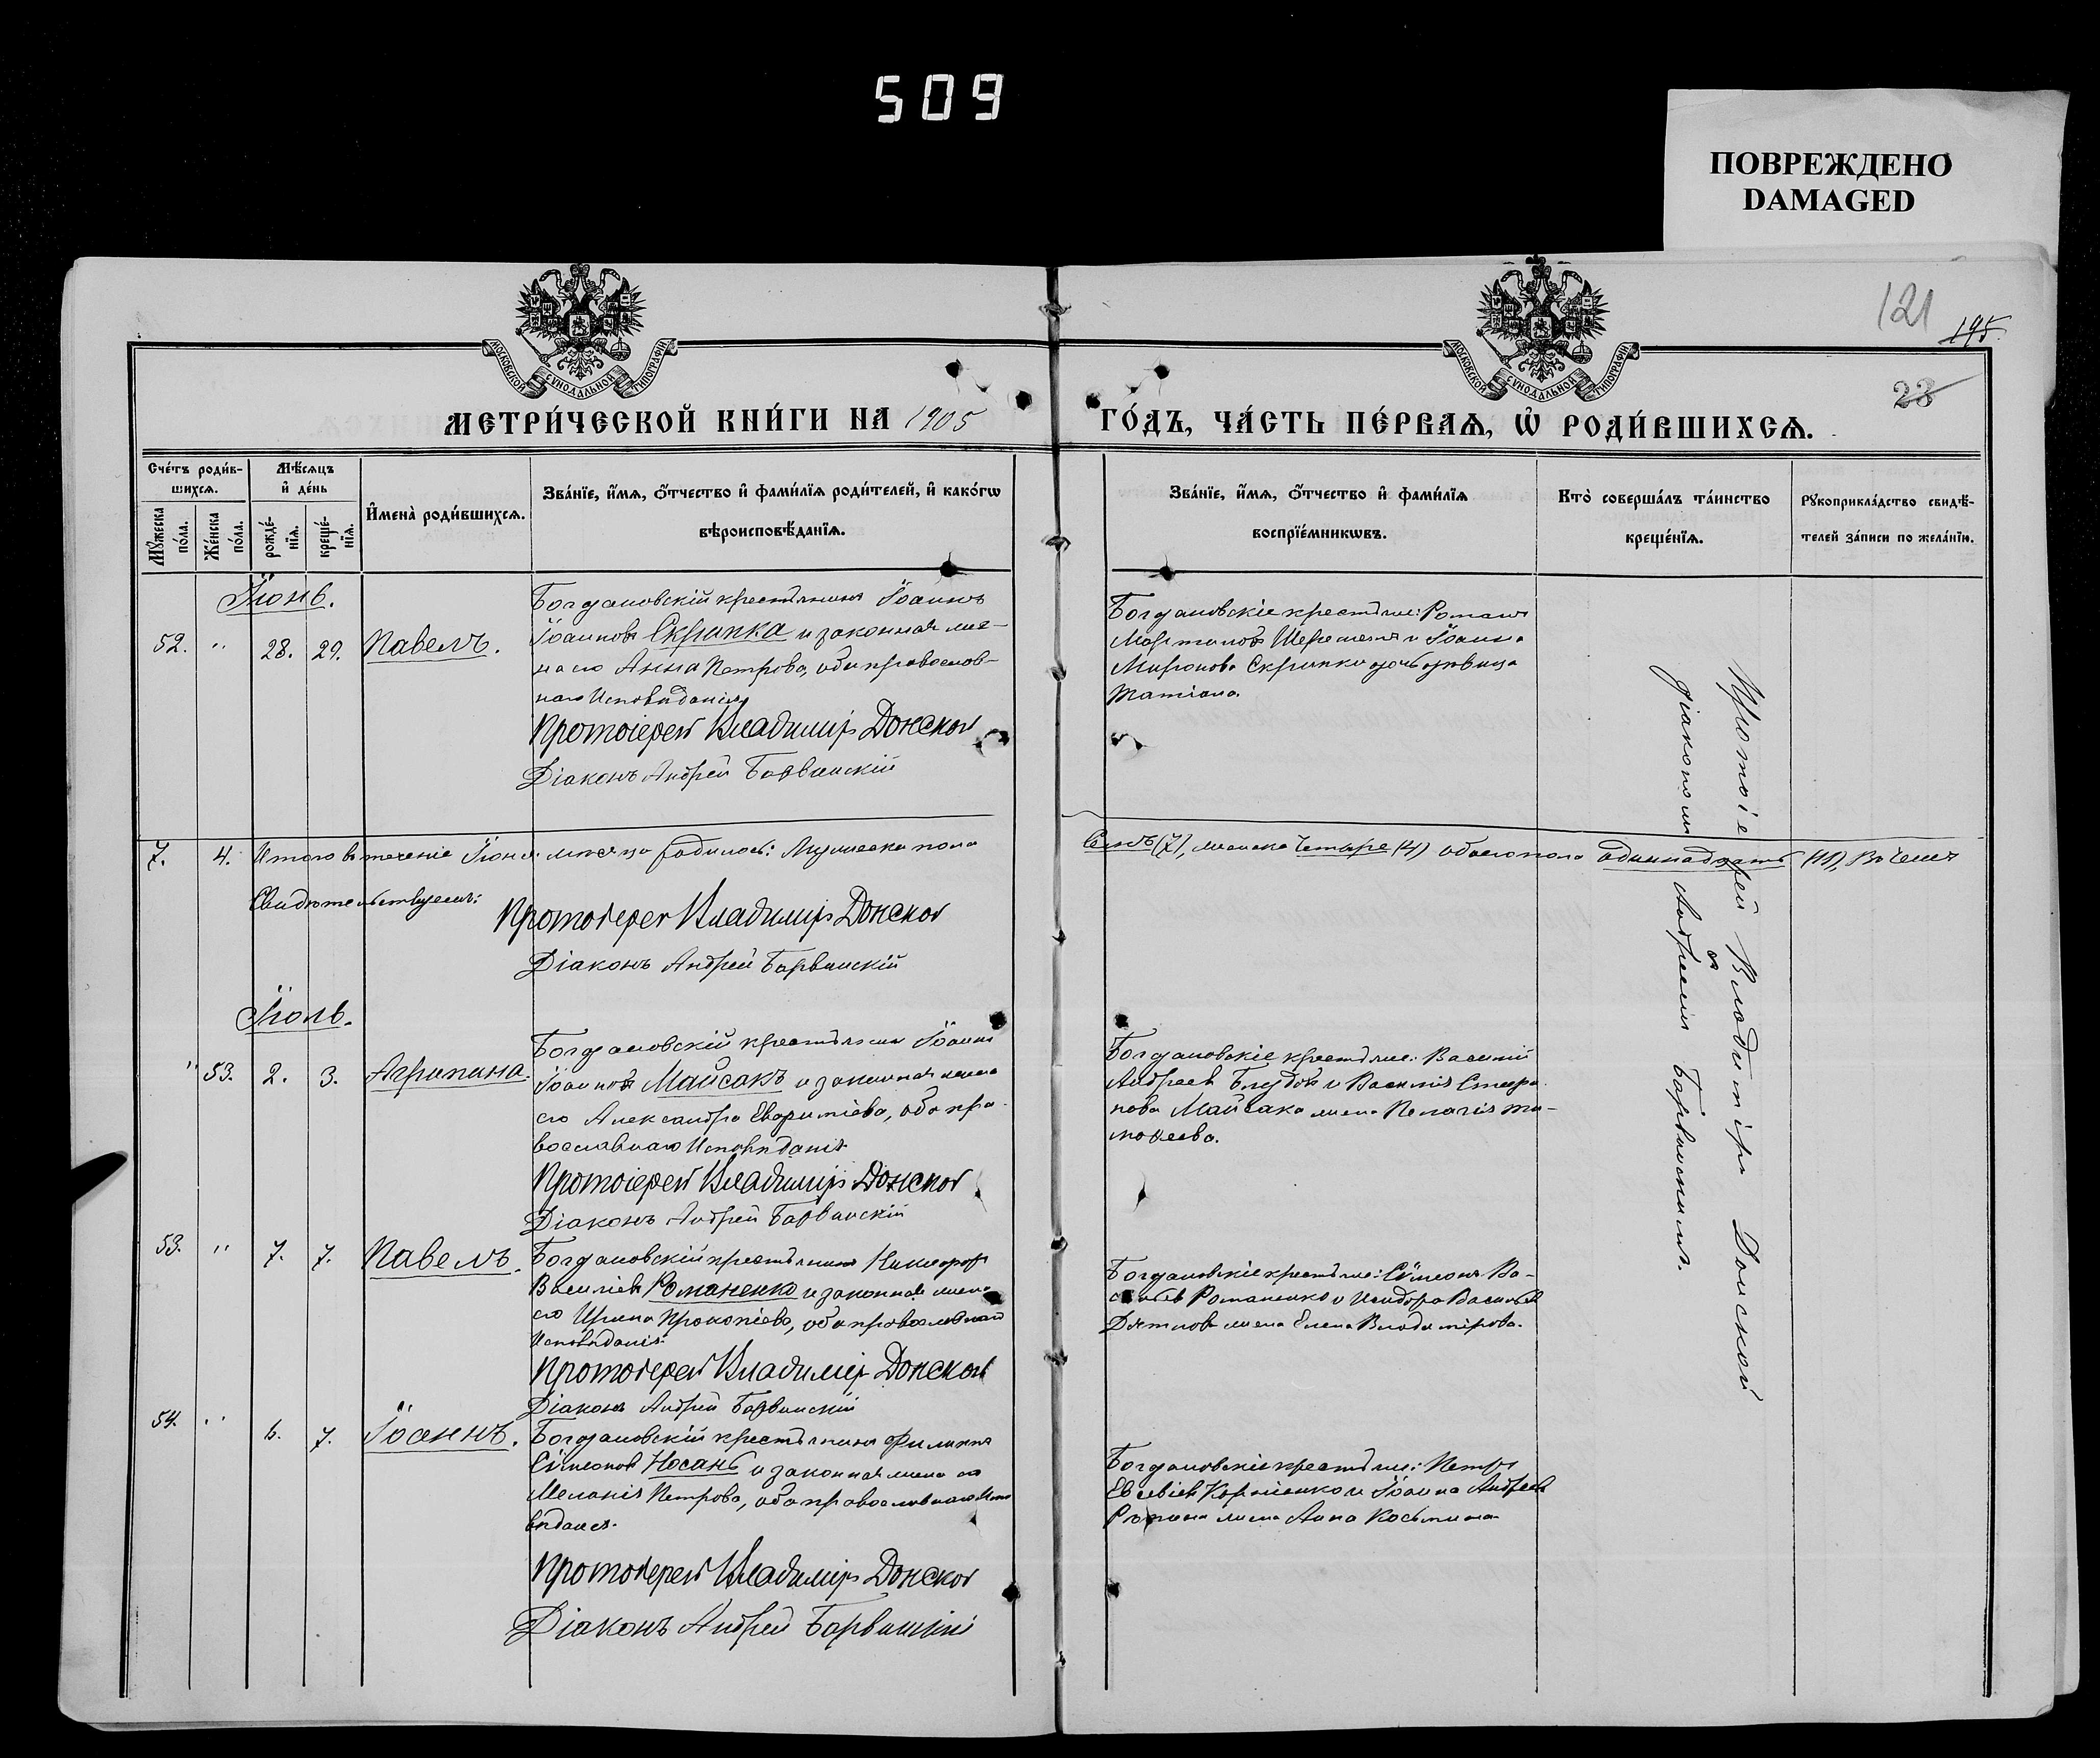 509
ПОВРЕЖДЕНО
DAMAGED
121
195
23
МОСКОВСКОЙ СУНОДАЛЬНОЙ ТИПОГРАФІИ
МОСКОВСКОЙ СУНОДАЛЬНОЙ ТИПОГРАФІИ
МЕТРИ́ЧЕСКОЙ КНИ́ГИ НА 1905
ГО́ДЪ, ЧА́СТЬ ПЕ́РВАѦ, Ѡ РОДИ́ВШИХСѦ.
Сче́тъ роди́в-
шихсѧ.
Мꙋ́жеска
по́ла.
Же́нска
по́ла.
Мѣ́сѧцъ
и҆ де́нь
рожде́-
нїѧ.
креще́-
нїѧ.
И҆мена̀ роди́вшихсѧ.
Зва́нїе, и҆́мѧ, ѻ҆́тчество и҆ фами́лїѧ роди́телей, и҆ како́гѡ
вѣроисповѣ́данїѧ.
Зва́нїе, и҆́мѧ, ѻ҆́тчество и҆ фами́лїѧ
воспрїе́мникѡвъ.
Кто̀ соверша́лъ та́инство
креще́нїѧ.
Рꙋкоприкла́дство свидѣ́-
телей за́писи по жела́нїю.
Іюнь.
52. " 28. 29. Павелъ.
Богдановскій крестьянинъ Іоаннъ
Іоанновъ Скрипка и законная же-
на его Анна Петрова, оба православ-
наго Исповѣданія
Протоіерей Владиміръ Донской
Діаконъ Андрей Барвинскій
Богдановскіе крестьяне: Романъ
Мартиновъ и Іоанна
Миронова Скрипки дочь дѣвица
Татіана.
7. 4. Итого въ теченіе Іюня мѣсяца родилось: Мужеска пола
Семь (7), женска четыре (4) обоего пола одиннадцать (11), Въ чемъ
Свидѣтельствуемъ:
Протоіерей Владиміръ Донской
Діаконъ Андрей Барвинскій
Іюль.
" 53. 2. 3. Агрипина.
Богдановскій крестьянинъ Іоаннъ
Іоанновъ Майсакъ и законная жена
его Александра, оба пра-
вославнаго Исповѣданія
Протоіерей Владиміръ Донской
Діаконъ Андрей Барвинскій
Богдановскіе крестьяне: Василій
Андреевъ и Василія Стефа-
нова Майсака жена Пелагія Ти-
моѳеева.
53. " 7. 7. Павелъ.
Богдановскій крестьянинъ Никифоръ
Василіевъ Романенко и законная жена
его Ирина Прокопіева, оба православнаго
Исповѣданія
Протоіерей Владиміръ Донской
Діаконъ Андрей Барвинскій
Богдановскіе крестьяне: Сѵмеонъ Ва-
сильевъ Романенко и Исидора Васильева
Дѣтлова жена Елена Владимірова.
54. " 6. 7. Іоаннъ.
Богдановскій крестьянинъ Филиппъ
Сѵмеоновъ Носань и законная жена его
Меланія Петрова, оба православнаго Испо
вѣданія.
Протоіерей Владиміръ Донской
Діаконъ Андрей Барвинскій
Богдановскіе крестьяне: Петръ
Евсевіевъ Корніенко и Іоанна Андреева
Рѣпина жена Анна Косьмина
Протоіерей Владиміръ Донской
съ
діакономъ Андреемъ Барвинскимъ.